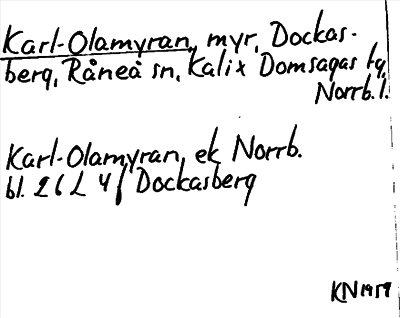 Karl-Olamyran, myr, Dockas-
berg, Råneå sn, Kalix Domsagas tg,
Norrb. l.
Karl-Olamyran, ek Norrb.
bl. 26 L 4 f Dockasberg
KN 1959